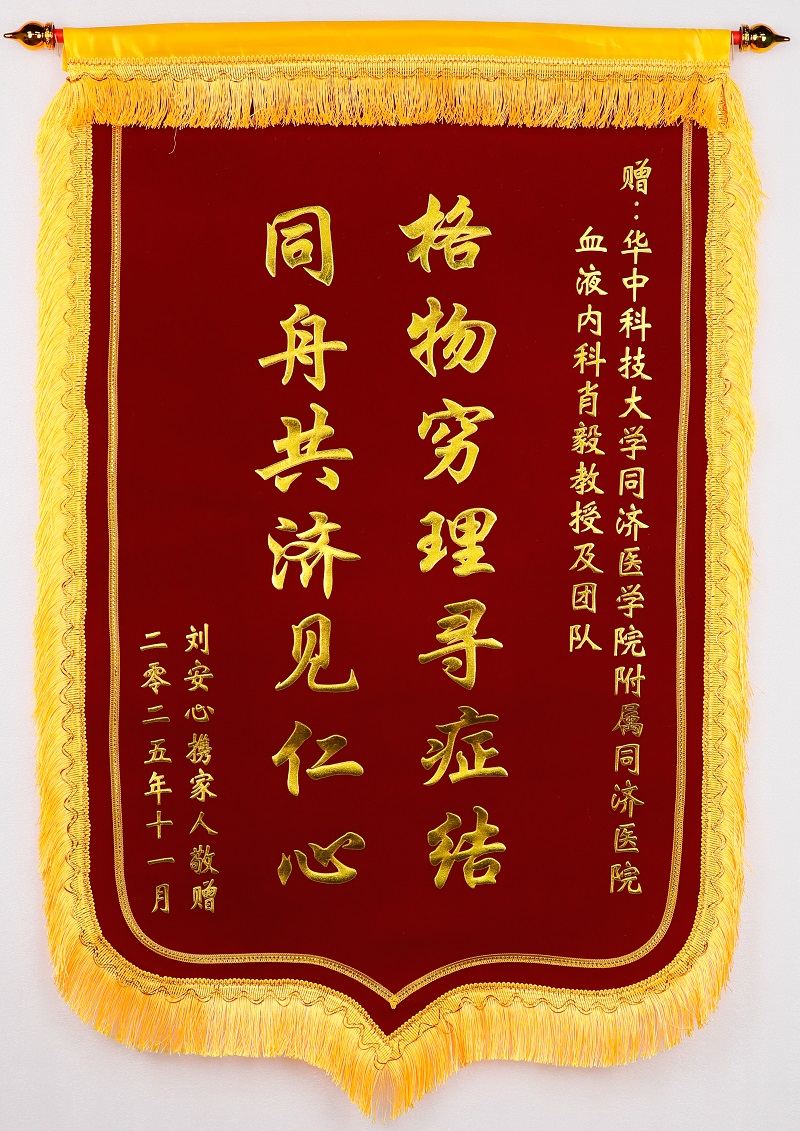 赠：华中科技大学同济医学院附属同济医院
血液内科肖毅教授及团队
格物穷理寻症结
同舟共济见仁心
刘安心携家人敬赠
二零二五年十一月